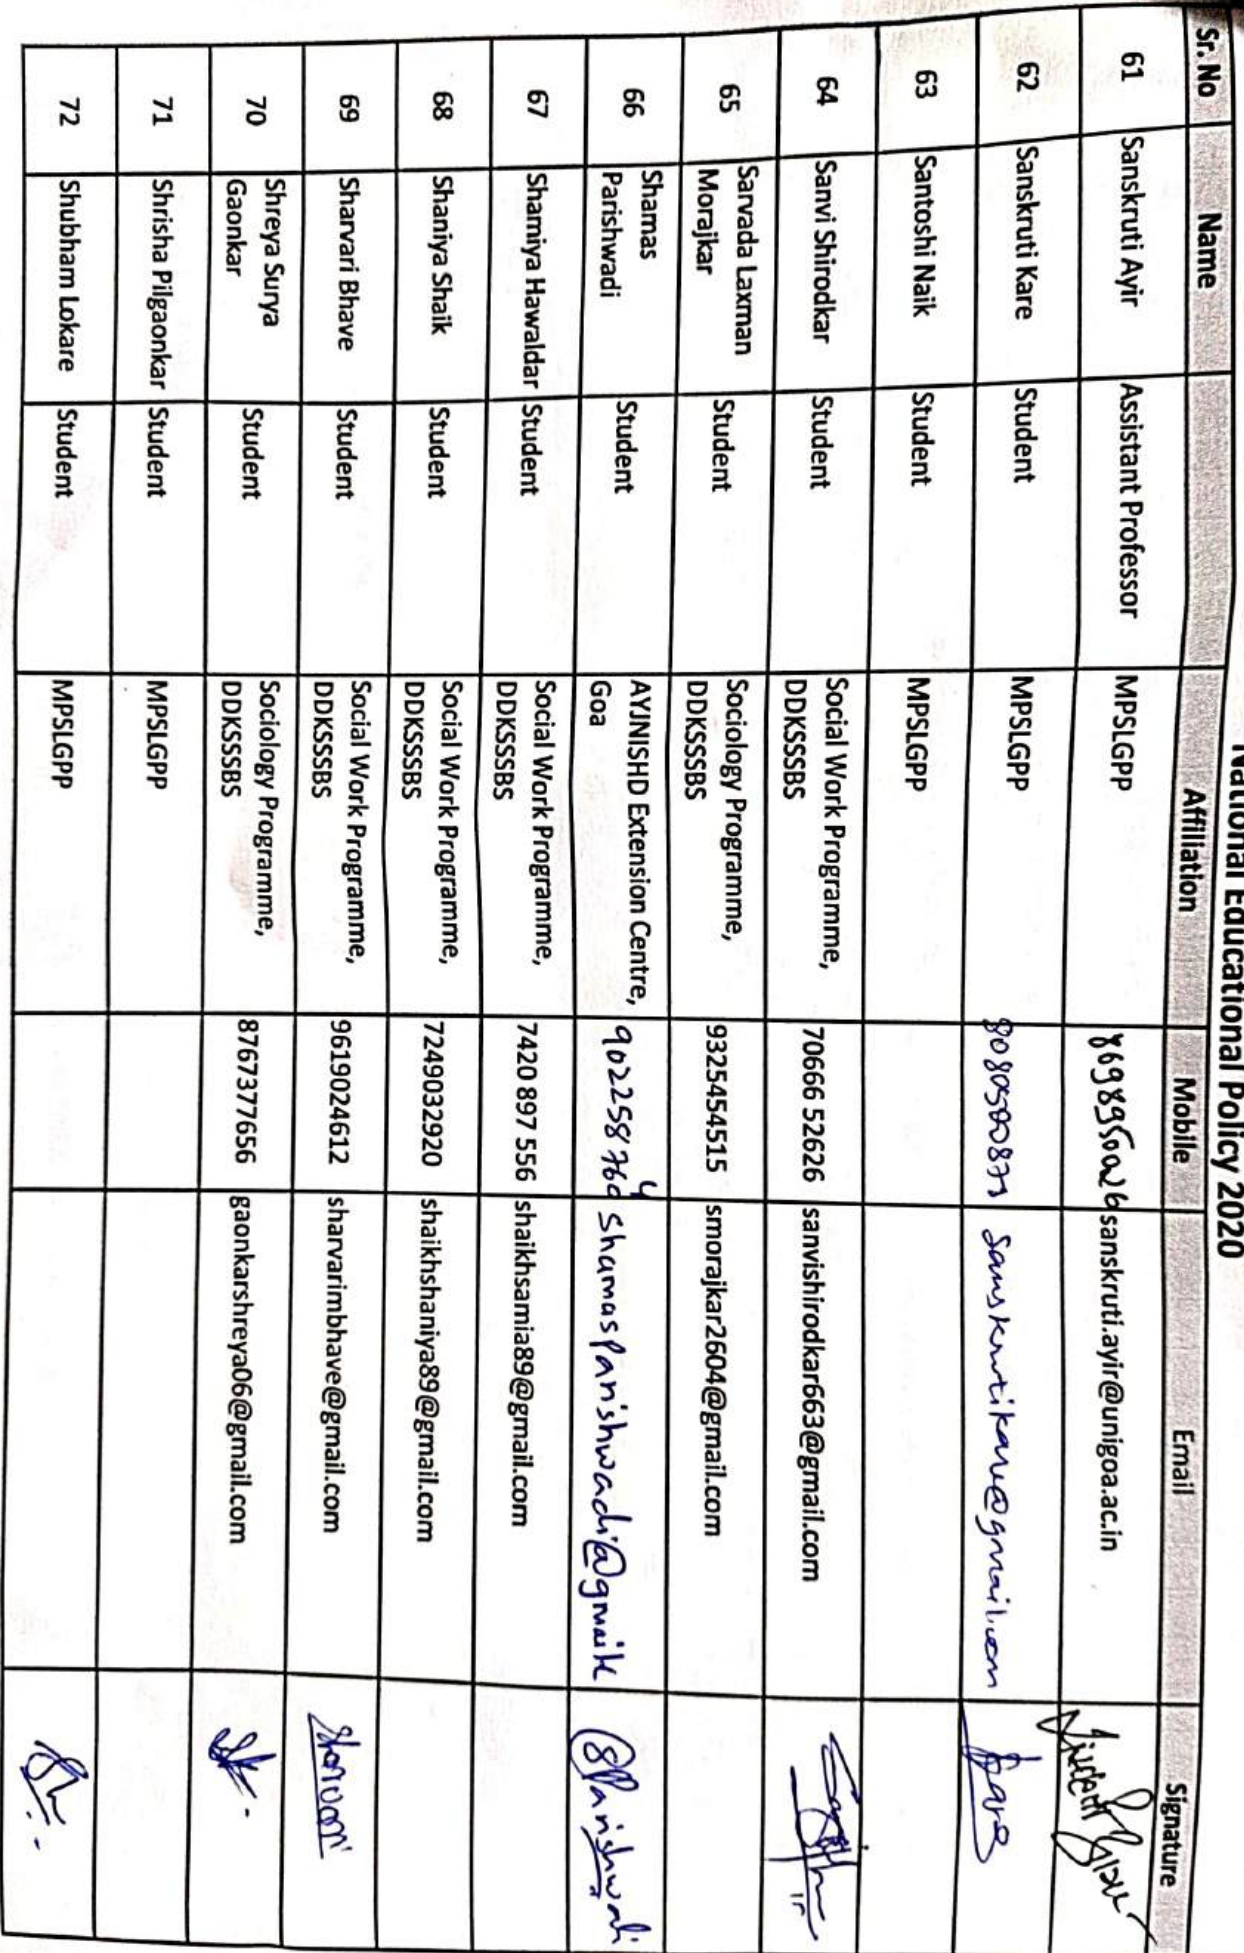 National Educational Policy 2020
Sr. No Name Affiliation Mobile Email Signature
61 Sanskruti Ayir Assistant Professor MPSLGPP 8698950026 sanskruti.ayir@unigoa.ac.in
62 Sanskruti Kare Student MPSLGPP sanskrutikare@gmail.com
63 Santoshi Naik Student MPSLGPP
64 Sanvi Shirodkar Student Social Work Programme, 70666 52626 sanvishirodkar663@gmail.com
DDKSSSBS
65 Sarvada Laxman Student Sociology Programme, 9325454515 smorajkar2604@gmail.com
Morajkar DDKSSSBS
66 Shamas Student AYJNISHD Extension Centre, shamasparishwadi@gmail SParishwadi
Parishwadi Goa
67 Shamiya Hawaldar Student Social Work Programme, 7420 897 556 shaikhsamia89@gmail.com
DDKSSSBS
68 Shaniya Shaik Student Social Work Programme, 7249032920 shaikhshaniya89@gmail.com
DDKSSSBS
69 Sharvari Bhave Student Social Work Programme, 9619024612 sharvarimbhave@gmail.com
DDKSSSBS
70 Shreya Surya Student Sociology Programme, 8767377656 gaonkarshreya06@gmail.com
Gaonkar DDKSSSBS
71 Shrisha Pilgaonkar Student MPSLGPP
72 Shubham Lokare Student MPSLGPP